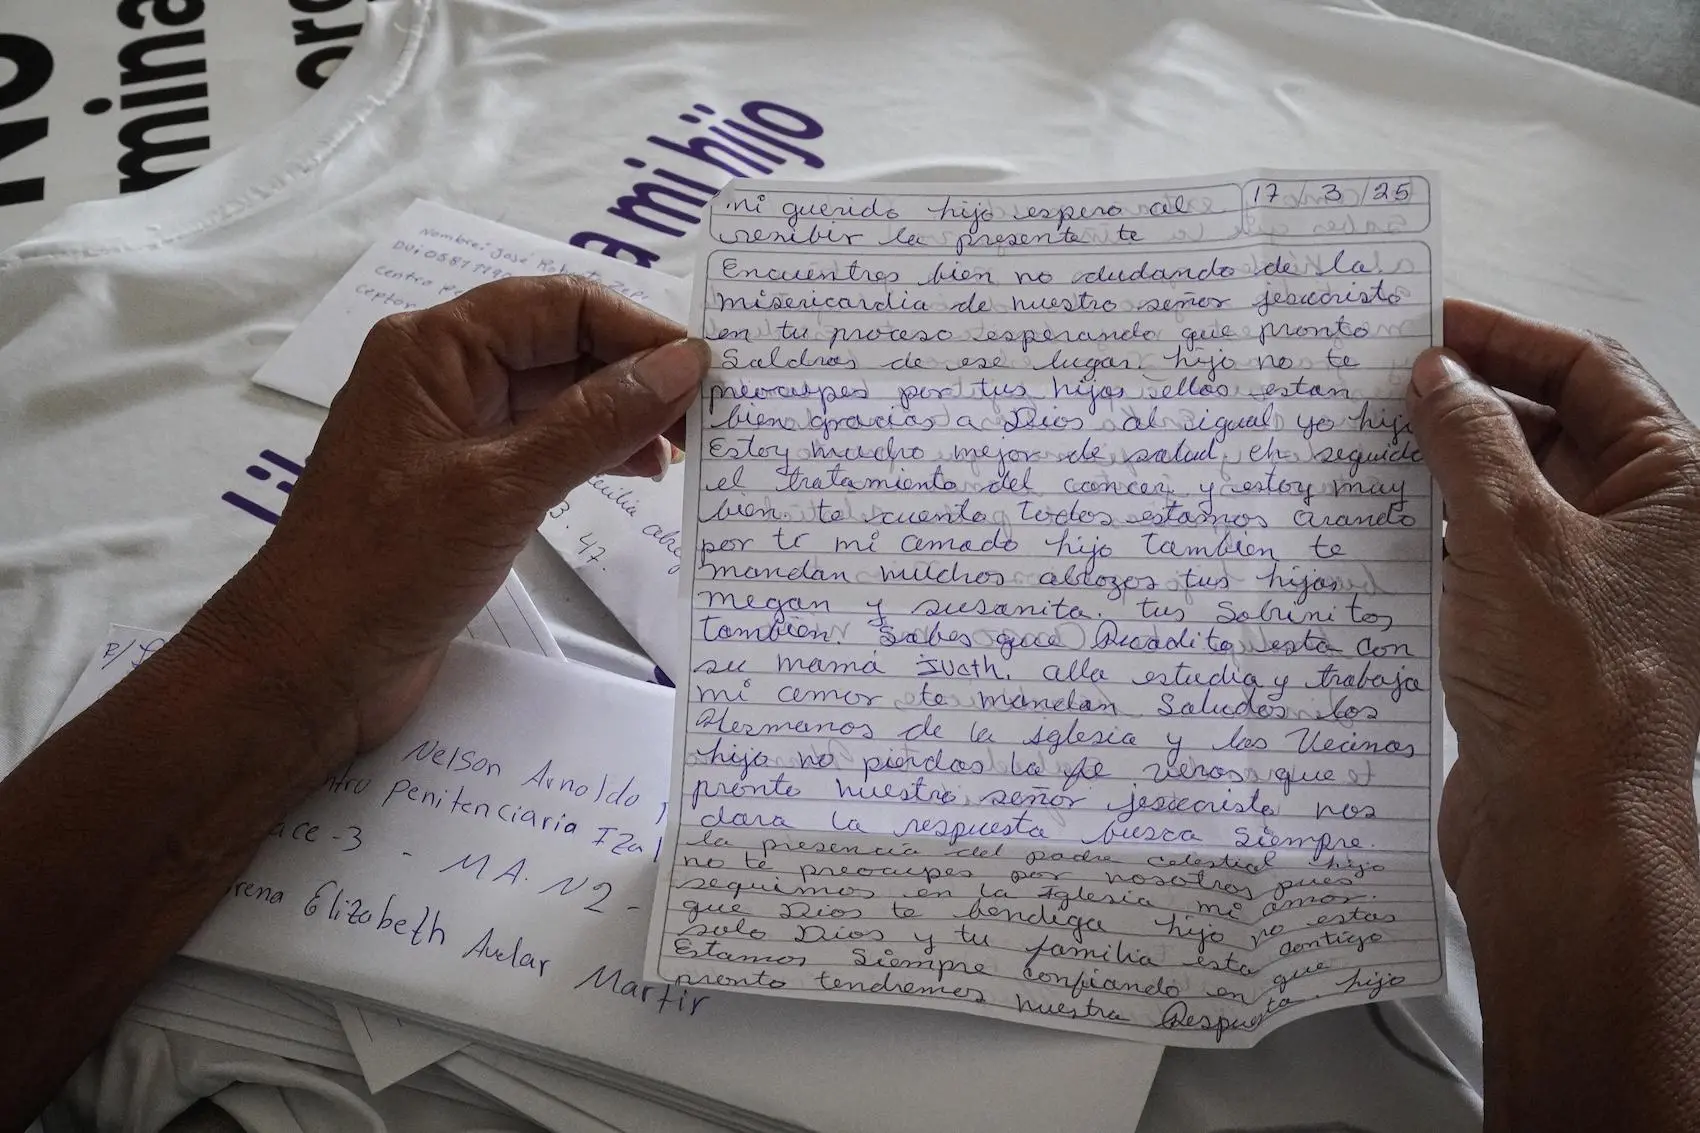 NO
mina
ore
a mi hijo
Lib
Nombre: José Roberto
DUI 058
Centro Pe
Ceptor
cilia
3.
47.
P/
Nelson Arnoldo
ntro penitenciaria Iza
ace-3 - MA. N2 -
rena Elizabeth Avelar Martir
mi querido hijo espero al
17 / 3 / 25
resibir la presente te
Encuentres bien no dudando de la
misericardia de nuestro señor jesucristo
en tu proceso esperando que pronto
Saldras de ese lugar. hijo no te
preocupes por tus hijos ellos estan
bien gracias a Dios al igual yo hijo
Estoy mucho mejor de salud, eh seguido
el tratamiento del cancer y estoy muy
bien te cuento todos estamos orando
por ti mi amado hijo tambien te
mandan muchos abrozos tus hijas
megan y susanita. tus Sobrinitos
tambien. Sabes que Ricardito esta con
su mamá Jucth. alla estudia y trabaja
mi amor te mandan Saludos los
Hermanos de la iglesia y las Vecinas
hijo no pierdas la fe veras que
pronto nuestro señor jesucristo nos
dara la respuesta busca siempre.
la presencia del padre celestial hijo
no te preocupes por nosotros pues.
seguimos en la Iglesia mi amor.
que Dios te bendiga hijo no estas
solo Dios y tu familia esta contigo
Estamos Siempre confiando en que
pronto tendremos nuestra Respuesta. hijo